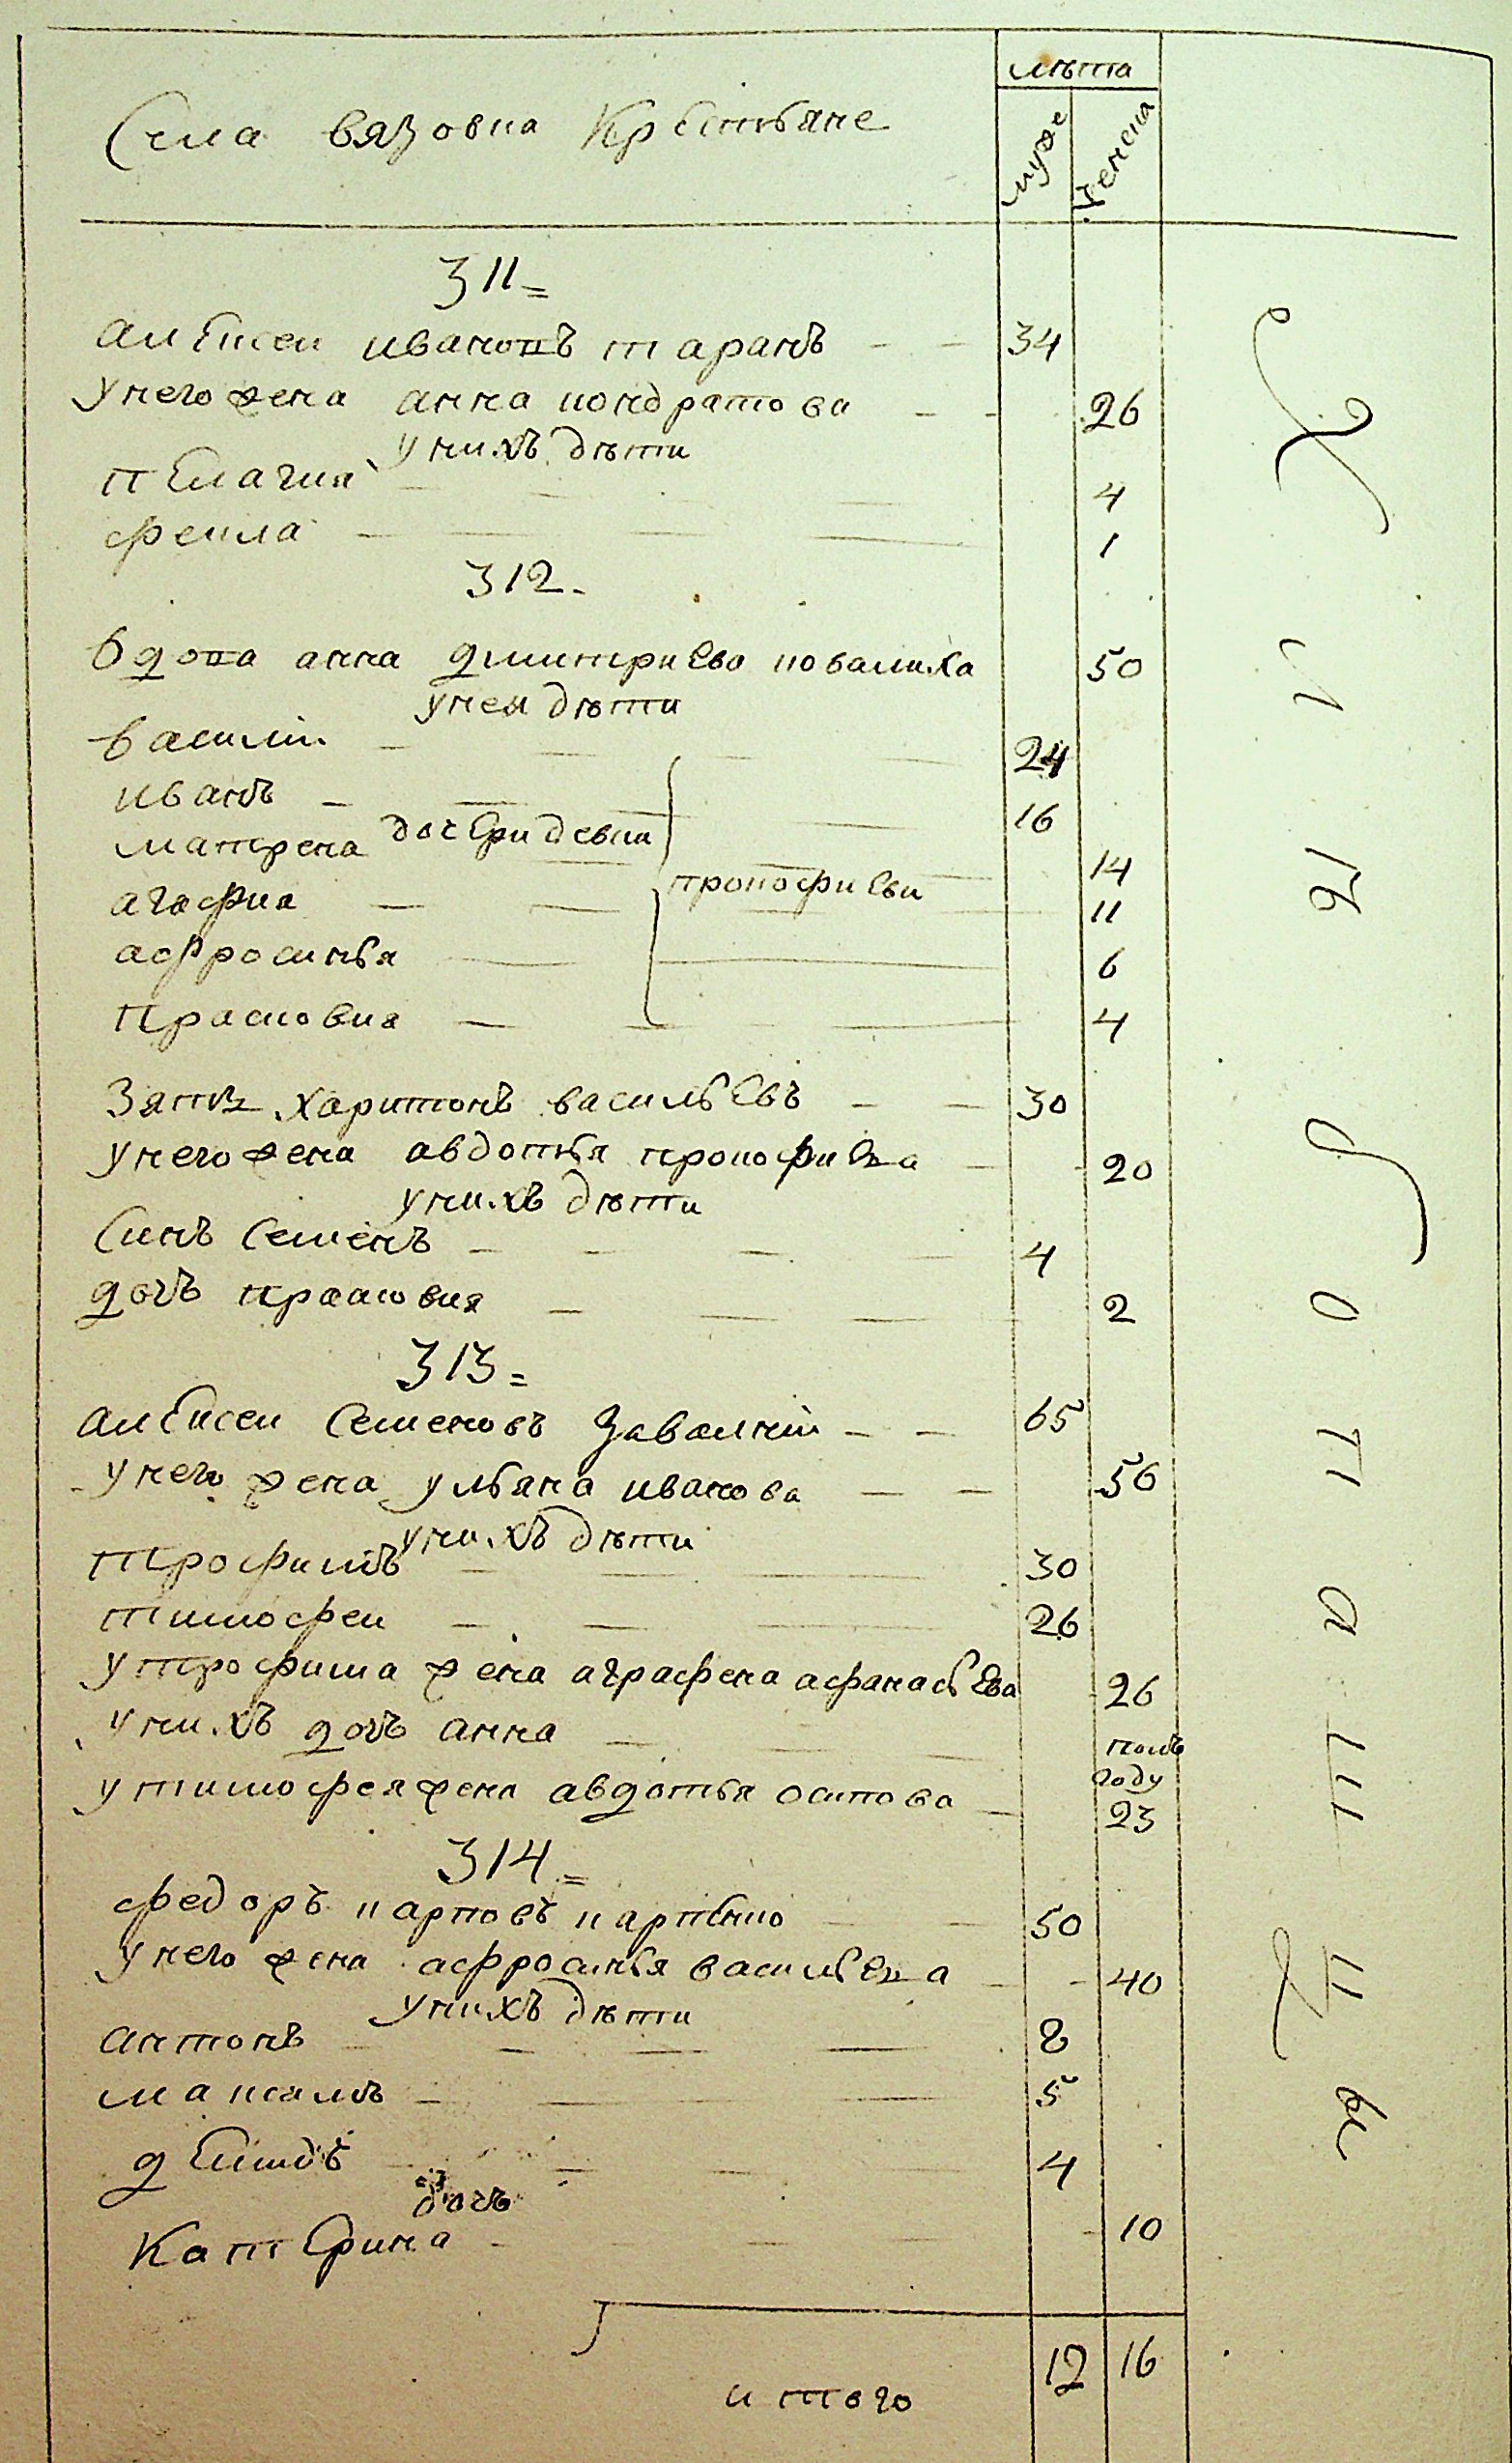 лѣта
Села Вязовка Крестьяне
муже
женска
311
алексеи ивановъ таранъ 34
у него жена анна кондратова 26
у нихъ дѣти
пелагия 4
фекла 1
312
вдова анна дмитриева ковалиха 50
у неи дѣти
василіи 24
иванъ 16
дочери девки
матрена 14
прокофиеви
агафиа 11
афросинья 6
прасковиа 4
зять харитонъ васильевъ 30
у него жена авдотья прокофиева 20
у нихъ дѣти
синъ семенъ 4
дочь прасковия 2
313
алексеи семеновъ завалнїи 65
у него жена ульяна иванова 56
у нихъ дѣти
трофимъ 30
тимофеи 26
у трофима жена аграфена афанасьева 26
у нихъ дочь анна полъ году
у тимофея жена авдотья осипова 23
314
федоръ карповъ карпенко 50
у него жена афросинья васильева 40
у нихъ дѣти
антонъ 8
максимъ 5
демидъ 4
дочь
катерина 10
итого 12 16